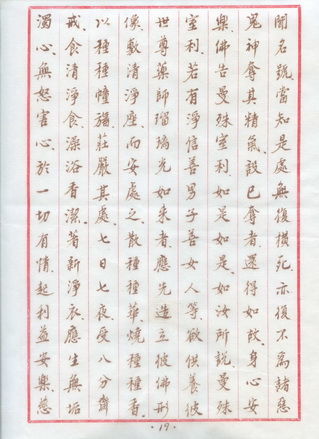 聞名號當知是處無復橫死亦復不為諸惡
鬼神奪其精氣設已奪者還得如故身心安
樂、佛告曼殊室利、如是如是如汝所說、曼殊
室利、若有淨信善男子善女人等、欲供養彼
世尊藥師瑠璃光如來者、應先造立彼佛形
像、敷清淨座、而安處之、散種種華、燒種種香、
以種種幢幡、莊嚴其處、七日七夜、受八分齋
戒、食清淨食、澡浴香潔、著新淨衣、應生無垢
濁心、無怒害心、於一切有情、起利益安樂、慈
·19·